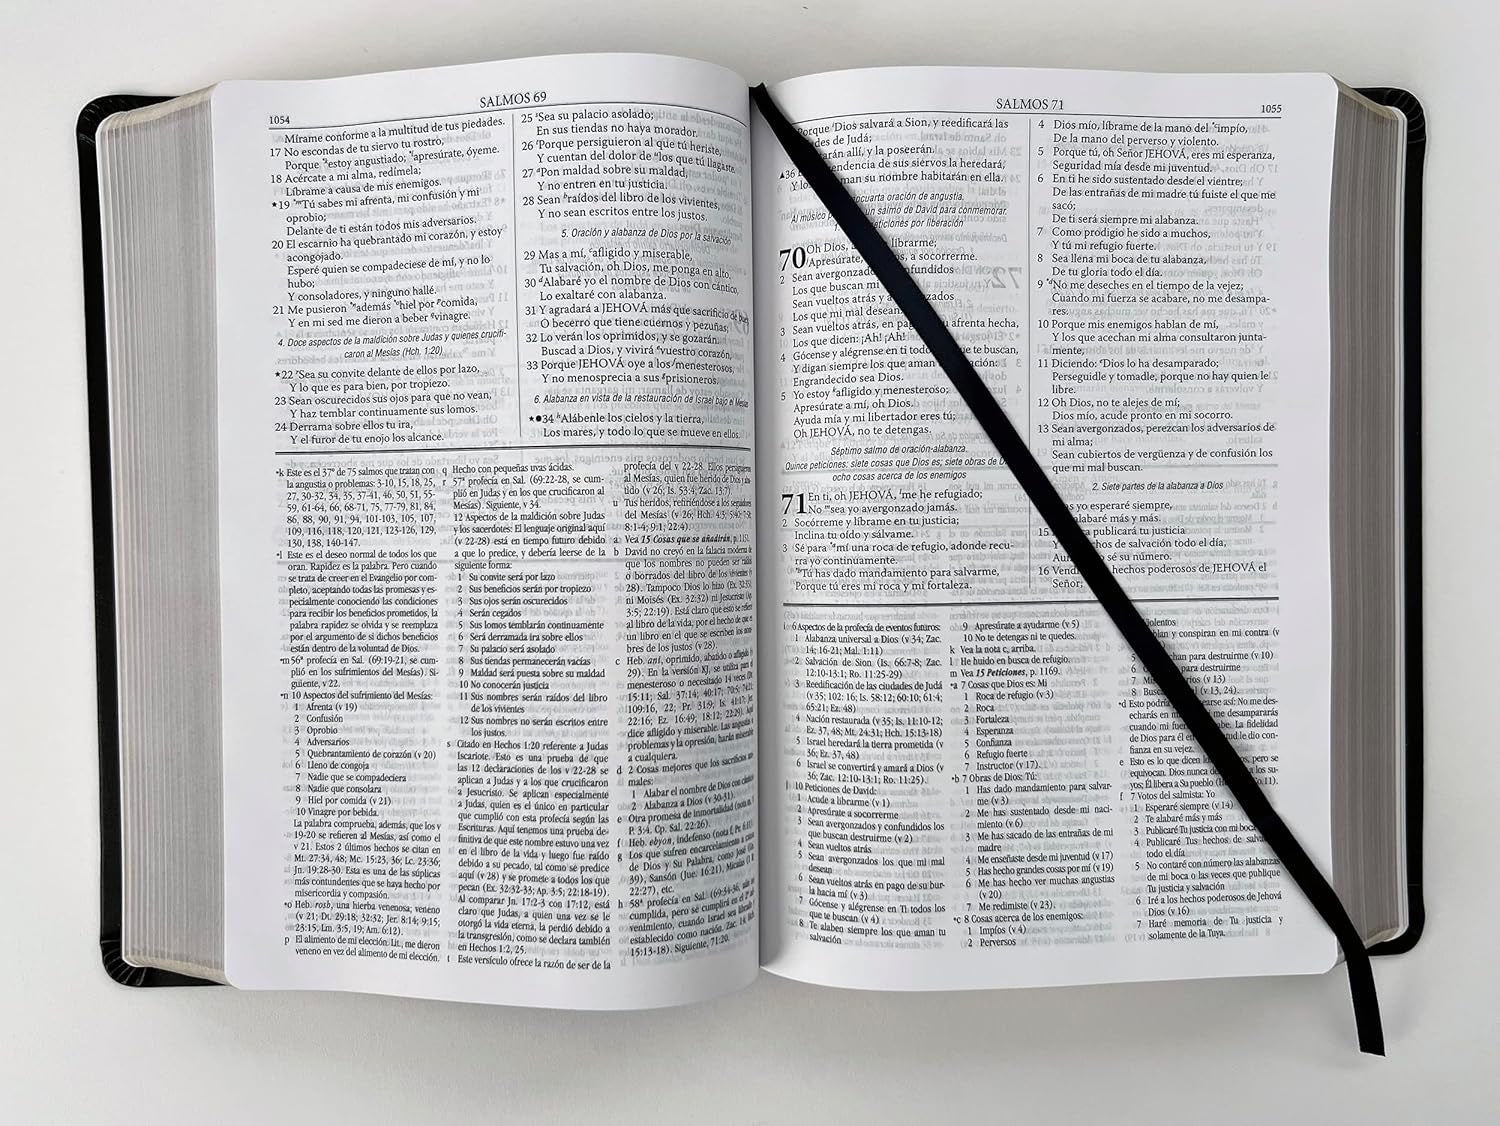 1054
SALMOS 69
Mírame conforme a la multitud de tus piedades.
17 No escondas de tu siervo tu rostro,
Porque estoy angustiado; apresúrate, óyeme.
18 Acércate a mi alma, redímela;
Líbrame a causa de mis enemigos.
★19 Tú sabes mi afrenta, mi confusión y mi
oprobio;
Delante de ti están todos mis adversarios.
20 El escarnio ha quebrantado mi corazón, y estoy
acongojado.
Esperé quien se compadeciese de mí, y no lo
hubo;
Y consoladores, y ninguno hallé.
21 Me pusieron además hiel por comida,
Y en mi sed me dieron a beber vinagre.
4. Doce aspectos de la maldición sobre Judas y quienes crucifi-
caron al Mesías (Hch. 1:20)
★22 Sea su convite delante de ellos por lazo,
Y lo que es para bien, por tropiezo.
23 Sean oscurecidos sus ojos para que no vean,
Y haz temblar continuamente sus lomos.
24 Derrama sobre ellos tu ira,
Y el furor de tu enojo los alcance.
25 Sea su palacio asolado;
En sus tiendas no haya morador.
26 Porque persiguieron al que tú heriste,
Y cuentan del dolor de los que tú llagaste.
27 Pon maldad sobre su maldad,
Y no entren en tu justicia.
28 Sean raídos del libro de los vivientes,
Y no sean escritos entre los justos.
5. Oración y alabanza de Dios por la salvación
29 Mas a mí, afligido y miserable,
Tu salvación, oh Dios, me ponga en alto.
30 Alabaré yo el nombre de Dios con cántico,
Lo exaltaré con alabanza.
31 Y agradará a JEHOVÁ más que sacrificio de buey,
O becerro que tiene cuernos y pezuñas;
32 Lo verán los oprimidos, y se gozarán.
Buscad a Dios, y vivirá vuestro corazón,
33 Porque JEHOVÁ oye a los menesterosos,
Y no menosprecia a sus prisioneros.
6. Alabanza en vista de la restauración de Israel bajo el Mesías
★●34 Alábenle los cielos y la tierra,
Los mares, y todo lo que se mueve en ellos.
*k Este es el 37° de 75 salmos que tratan con
la angustia o problemas: 3-10, 15, 18, 25,
27, 30-32, 34, 35, 37-41, 46, 50, 51, 55-
59, 61-64, 66, 68-71, 75, 77-79, 81, 84,
86, 88, 90, 91, 94, 101-103, 105, 107,
109, 116, 118, 120, 121, 123-126, 129,
130, 138, 140-147.
*l Este es el deseo normal de todos los que
oran. Rapidez es la palabra. Pero cuando
se trata de creer en el Evangelio por com-
pleto, aceptando todas las promesas y es-
pecialmente conociendo las condiciones
para recibir los beneficios prometidos, la
palabra rapidez se olvida y se reemplaza
por el argumento de si dichos beneficios
están dentro de la voluntad de Dios.
*m 56ª profecía en Sal. (69:19-21, se cum-
plió en los sufrimientos del Mesías). Si-
guiente, v 22.
*n 10 Aspectos del sufrimiento del Mesías:
1 Afrenta (v 19)
2 Confusión
3 Oprobio
4 Adversarios
5 Quebrantamiento de corazón (v 20)
6 Lleno de congoja
7 Nadie que se compadeciera
8 Nadie que consolara
9 Hiel por comida (v 21)
10 Vinagre por bebida.
La palabra comprueba, además, que los v
19-20 se refieren al Mesías, así como el
v 21. Estos 2 últimos hechos se citan en
Mt. 27:34, 48; Mc. 15:23, 36; Lc. 23:36;
Jn. 19:28-30. Esta es una de las súplicas
más contundentes que se haya hecho por
misericordia y compasión.
*o Heb. rosh, una hierba venenosa; veneno
(v 21; Dt. 29:18; 32:32; Jer. 8:14; 9:15;
23:15; Lm. 3:5, 19; Am. 6:12).
p El alimento de mi elección. Lit., me dieron
veneno en vez del alimento de mi elección.
q Hecho con pequeñas uvas ácidas.
r 57ª profecía en Sal. (69:22-28, se cum-
plió en Judas y en los que crucificaron al
Mesías). Siguiente, v 34.
12 Aspectos de la maldición sobre Judas
y los sacerdotes: El lenguaje original aquí
(v 22-28) está en tiempo futuro debido
a que lo predice, y debería leerse de la
siguiente forma:
1 Su convite será por lazo
2 Sus beneficios serán por tropiezo
3 Sus ojos serán oscurecidos
4 Serán cegados
5 Sus lomos temblarán continuamente
6 Será derramada ira sobre ellos
7 Su palacio será asolado
8 Sus tiendas permanecerán vacías
9 Maldad será puesta sobre su maldad
10 No conocerán justicia
11 Sus nombres serán raídos del libro
de los vivientes
12 Sus nombres no serán escritos entre
los justos.
s Citado en Hechos 1:20 referente a Judas
Iscariote. Esto es una prueba de que
las 12 declaraciones de los v 22-28 se
aplican a Judas y a los que crucificaron
a Jesucristo. Se aplican especialmente
a Judas, quien es el único en particular
que cumplió con esta profecía según las
Escrituras. Aquí tenemos una prueba de-
finitiva de que este nombre estuvo una vez
en el libro de la vida y luego fue raído
debido a su pecado, tal como se predice
aquí (v 28) y se promete a todos los que
pecan (Ex. 32:32-33; Ap. 3:5; 22:18-19).
Al comparar Jn. 17:2-3 con 17:12, está
claro que Judas, a quien una vez se le
otorgó la vida eterna, la perdió debido a
la transgresión, como se declara también
en Hechos 1:2, 25.
t Este versículo ofrece la razón de ser de la
profecía del v 22-28. Ellos persiguieron
al Mesías, quien fue herido de Dios y aba-
tido (v 26; Is. 53:4; Zac. 13:7).
u Tus heridos, refiriéndose a los seguidores
del Mesías (v 26; Hch. 4:3; 5:40; 7:58;
8:1-4; 9:1; 22:4).
a Vea 15 Cosas que se añadirán, p. 1151.
b David no creyó en la falacia moderna de
que los nombres no pueden ser raídos
o borrados del libro de los vivientes (v
28). Tampoco Dios lo hizo (Ex. 32:32)
ni Moisés (Ex. 32:32) ni Jesucristo (Ap.
3:5; 22:19). Está claro que esto se refiere
al libro de la vida, por el hecho de que es
un libro en el que se escriben los nom-
bres de los justos (v 28).
c Heb. ani, oprimido, abatido o afligido (v
29). En la versión KJ, se utiliza para el
menesteroso o necesitado 14 veces (Dt.
15:11; Sal. 37:14; 40:17; 70:5; 74:21;
109:16, 22; Pr. 31:9; Is. 41:17; Jer.
22:16; Ez. 16:49; 18:12; 22:29). Aquí
dice afligido y miserable. Las angustias y
problemas y la opresión, harán miserable
a cualquiera.
d 2 Cosas mejores que los sacrificios ani-
males:
1 Alabar el nombre de Dios con cántico
2 Alabanza a Dios (v 30-31).
e Otra promesa de inmortalidad (nota m,
P. 3:4. Cp. Sal. 22:26).
f Heb. ebyon, indefenso (nota f, Pr. 6:11).
g Los que sufren encarcelamiento a causa
de Dios y Su Palabra, como José (Gn.
39), Sansón (Jue. 16:21), Micaías (1 R.
22:27), etc.
h 58ª profecía en Sal. (69:34-36, sin
cumplida, pero se cumplirá en el 2°
venimiento, cuando Israel sea librado y
establecido como nación. Zac. 14; Hch.
15:13-18). Siguiente, 71:20.
SALMOS 71
1055
Porque Dios salvará a Sion, y reedificará las
des de Judá;
arán allí, y la poseerán.
▲36 dependencia de sus siervos la heredará,
Y los aman su nombre habitarán en ella.
ocuarta oración de angustia.
Al músico p un salmo de David para conmemorar.
peticiones por liberación
70 Oh Dios, a librarme;
Apresúrate, s, a socorrerme.
2 Sean avergonzados fundidos
Los que buscan mi
Sean vueltos atrás y a gonzados
Los que mi mal desean
3 Sean vueltos atrás, en pag u afrenta hecha,
Los que dicen: ¡Ah! ¡Ah!
4 Gócense y alégrense en ti todo que te buscan,
Y digan siempre los que aman ación:
Engrandecido sea Dios.
5 Yo estoy afligido y menesteroso;
Apresúrate a mí, oh Dios.
Ayuda mía y mi libertador eres tú;
Oh JEHOVÁ, no te detengas.
Séptimo salmo de oración-alabanza.
Quince peticiones: siete cosas que Dios es; siete obras de D
ocho cosas acerca de los enemigos
71 En ti, oh JEHOVÁ, me he refugiado;
No sea yo avergonzado jamás.
2 Socórreme y líbrame en tu justicia;
Inclina tu oído y sálvame.
3 Sé para mí una roca de refugio, adonde recu-
rra yo continuamente.
Tú has dado mandamiento para salvarme,
Porque tú eres mi roca y mi fortaleza.
4 Dios mío, líbrame de la mano del impío,
De la mano del perverso y violento.
5 Porque tú, oh Señor JEHOVÁ, eres mi esperanza,
Seguridad mía desde mi juventud.
6 En ti he sido sustentado desde el vientre;
De las entrañas de mi madre tú fuiste el que me
sacó;
De ti será siempre mi alabanza.
7 Como prodigio he sido a muchos,
Y tú mi refugio fuerte.
8 Sea llena mi boca de tu alabanza,
De tu gloria todo el día.
9 No me deseches en el tiempo de la vejez;
Cuando mi fuerza se acabare, no me desampa-
res.
10 Porque mis enemigos hablan de mí,
Y los que acechan mi alma consultaron junta-
mente,
11 Diciendo: Dios lo ha desamparado;
Perseguidle y tomadle, porque no hay quien le
libre.
12 Oh Dios, no te alejes de mí;
Dios mío, acude pronto en mi socorro.
13 Sean avergonzados, perezcan los adversarios de
mi alma;
Sean cubiertos de vergüenza y de confusión los
que mi mal buscan.
2. Siete partes de la alabanza a Dios
as yo esperaré siempre,
alabaré más y más.
15 publicará tu justicia
Y hechos de salvación todo el día,
Aun o sé su número.
16 Vend hechos poderosos de JEHOVÁ el
Señor;
i 6 Aspectos de la profecía de eventos futuros:
1 Alabanza universal a Dios (v 34; Zac.
14; 16-21; Mal. 1:11)
2 Salvación de Sion (Is. 66:7-8; Zac.
12:10-13:1; Ro. 11:25-29)
3 Reedificación de las ciudades de Judá
(v 35; 102: 16; Is. 58:12; 60:10; 61:4;
65:21; Ez. 48)
4 Nación restaurada (v 35; Is. 11:10-12;
Ez. 37, 48; Mt. 24:31; Hch. 15:13-18)
5 Israel heredará la tierra prometida (v
36; Ez. 37, 48)
6 Israel se convertirá y amará a Dios (v
36; Zac. 12:10-13:1; Ro. 11:25).
j 10 Peticiones de David:
1 Acude a librarme (v 1)
2 Apresúrate a socorrerme
3 Sean avergonzados y confundidos los
que buscan destruirme (v 2)
4 Sean vueltos atrás
5 Sean avergonzados los que mi mal
desean
6 Sean vueltos atrás en pago de su bur-
la hacia mí (v 3)
7 Gócense y alégrense en Ti todos los
que te buscan (v 4)
8 Te alaben siempre los que aman tu
salvación
9 Apresúrate a ayudarme (v 5)
10 No te detengas ni te quedes.
k Vea la nota c, arriba.
l He huido en busca de refugio.
m Vea 15 Peticiones, p. 1169.
*a 7 Cosas que Dios es: Mi
1 Roca de refugio (v 3)
2 Roca
3 Fortaleza
4 Esperanza
5 Confianza
6 Refugio fuerte
7 Instructor (v 17).
*b 7 Obras de Dios: Tú:
1 Has dado mandamiento para salvar-
me (v 3)
2 Me has sustentado desde mi naci-
miento (v 6)
3 Me has sacado de las entrañas de mi
madre
4 Me enseñaste desde mi juventud (v 17)
5 Has hecho grandes cosas por mí (v 19)
6 Me has hecho ver muchas angustias
(v 20)
7 Me redimiste (v 23).
*c 8 Cosas acerca de los enemigos:
1 Impíos (v 4)
2 Perversos
iolentos
blan y conspiran en mi contra (v
5 chan para destruirme (v 10)
6 para destruirme
7 Mis rios (v 13)
8 Busca l (v 13, 24).
*d Esto podría rarse así: No me des-
echarás en mi me desampararás
cuando mi fue be. La fidelidad
de Dios para él e nd le dio con-
fianza en su vejez.
e Esto es lo que dicen lo pero se
equivocan. Dios nunca de a los su-
yos; Él libera a Su pueblo (H 11).
f 7 Votos del salmista: Yo
1 Esperaré siempre (v 14)
2 Te alabaré más y más
3 Publicaré Tu justicia con mi boca
4 Publicaré Tus hechos de salva
todo el día
5 No contaré con número las alabanzas
de mi boca o las veces que publique
Tu justicia y salvación
6 Iré a los hechos poderosos de Jehová
Dios (v 16)
7 Haré memoria de Tu justicia y
solamente de la Tuya.